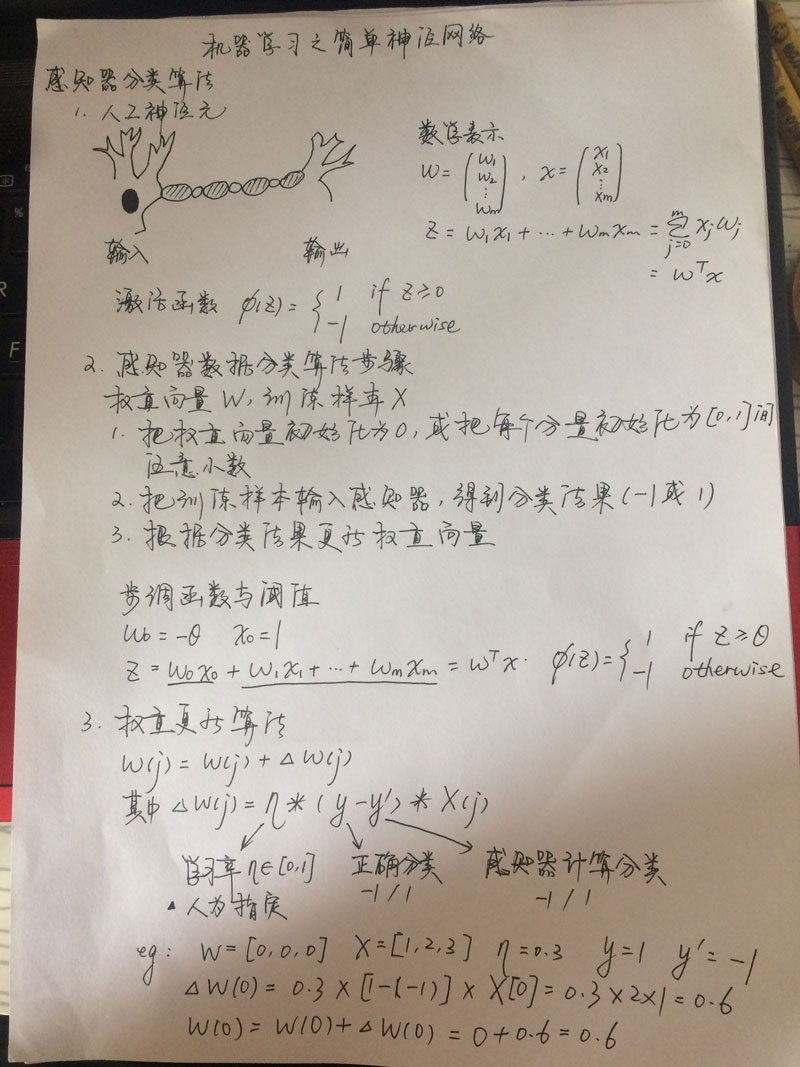 机器学习之简单神经网络
感知器分类算法
1. 人工神经元
输入 输出
数学表示
W = (w1 w2 ⋮ wm), x = (x1 x2 ⋮ xm)
Z = w1x1 + … + wmxm = ∑_{j=0}^{m} xjwj
= w^T x
激活函数 φ(z) = { 1 if z≥0
-1 otherwise
2. 感知器数据分类算法步骤
权重向量W, 训练样本X
1. 把权重向量初始化为0, 或把每个分量初始化为[0,1]间
任意小数
2. 把训练样本输入感知器, 得到分类结果(-1或1)
3. 根据分类结果更新权重向量
步调函数与阈值
w0 = -θ x0 = 1
Z = w0x0 + w1x1 + … + wmxm = w^T x. φ(z) = { 1 if z≥θ
-1 otherwise
3. 权重更新算法
W(j) = W(j) + △W(j)
其中 △W(j) = η * (y - y') * X(j)
学习率 η∈[0,1] 正确分类 感知器计算分类
-1 / 1 -1 / 1
▲ 人为指定
eg: W = [0,0,0] X = [1,2,3] η = 0.3 y = 1 y' = -1
△W(0) = 0.3 × [1-(-1)] × X[0] = 0.3 × 2 × 1 = 0.6
W(0) = W(0) + △W(0) = 0 + 0.6 = 0.6